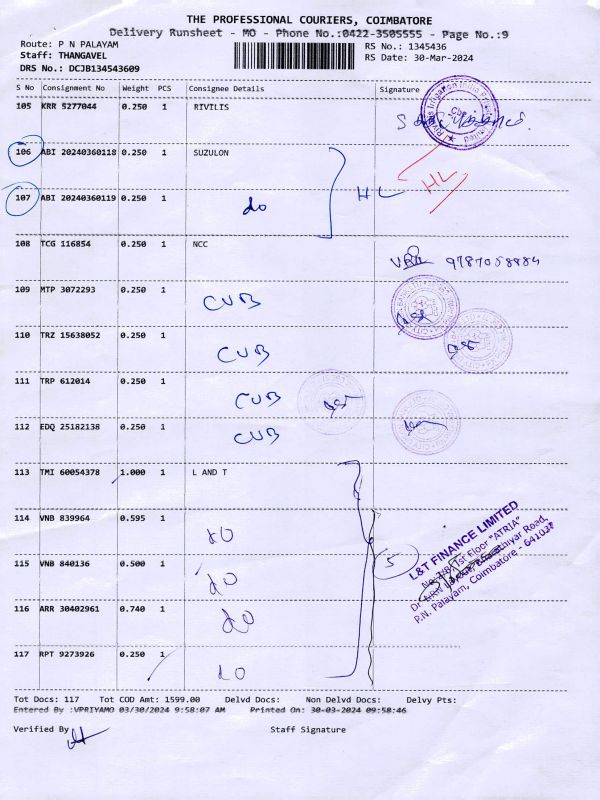 THE PROFESSIONAL COURIERS, COIMBATORE
Delivery Runsheet - MO - Phone No.:0422-3505555 - Page No.:9
Route: P N PALAYAM
Staff: THANGAVEL
DRS No.: DCJB134543609
RS No.: 1345436
RS Date: 30-Mar-2024
S No Consignment No Weight PCS Consignee Details Signature
105 KRR 5277044 0.250 1 RIVILIS
106 ABI 20240360118 0.250 1 SUZULON
HL
HL
107 ABI 20240360119 0.250 1 do
108 TCG 116854 0.250 1 NCC
9787058884
109 MTP 3072293 0.250 1 CUB
110 TRZ 15638052 0.250 1 CUB
111 TRP 612014 0.250 1 CUB
112 EDQ 25182138 0.250 1 CUB
113 TMI 60054378 1.000 1 L AND T
114 VNB 839964 0.595 1 do
5
L&T FINANCE LIMITED
1st Floor "ATRIA"
Road,
P.N. Palayam, Coimbatore - 641037
115 VNB 840136 0.500 1 do
116 ARR 30402961 0.740 1 do
117 RPT 9273926 0.250 1 do
Tot Docs: 117 Tot COD Amt: 1599.00 Delvd Docs: Non Delvd Docs: Delvy Pts:
Entered By :VPRIYAMO 03/30/2024 9:58:07 AM Printed On: 30-03-2024 09:58:46
Verified By
Staff Signature